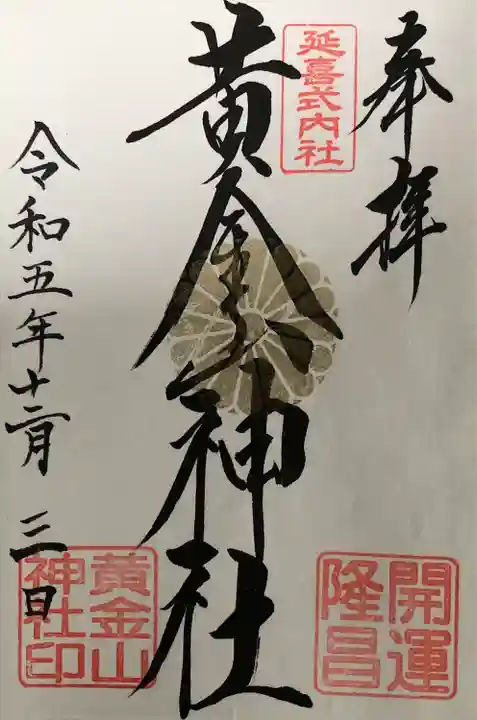 奉拝
延喜式内社
開運
隆昌
黄金神社
令和五年十二月三日
黄金山
神社印